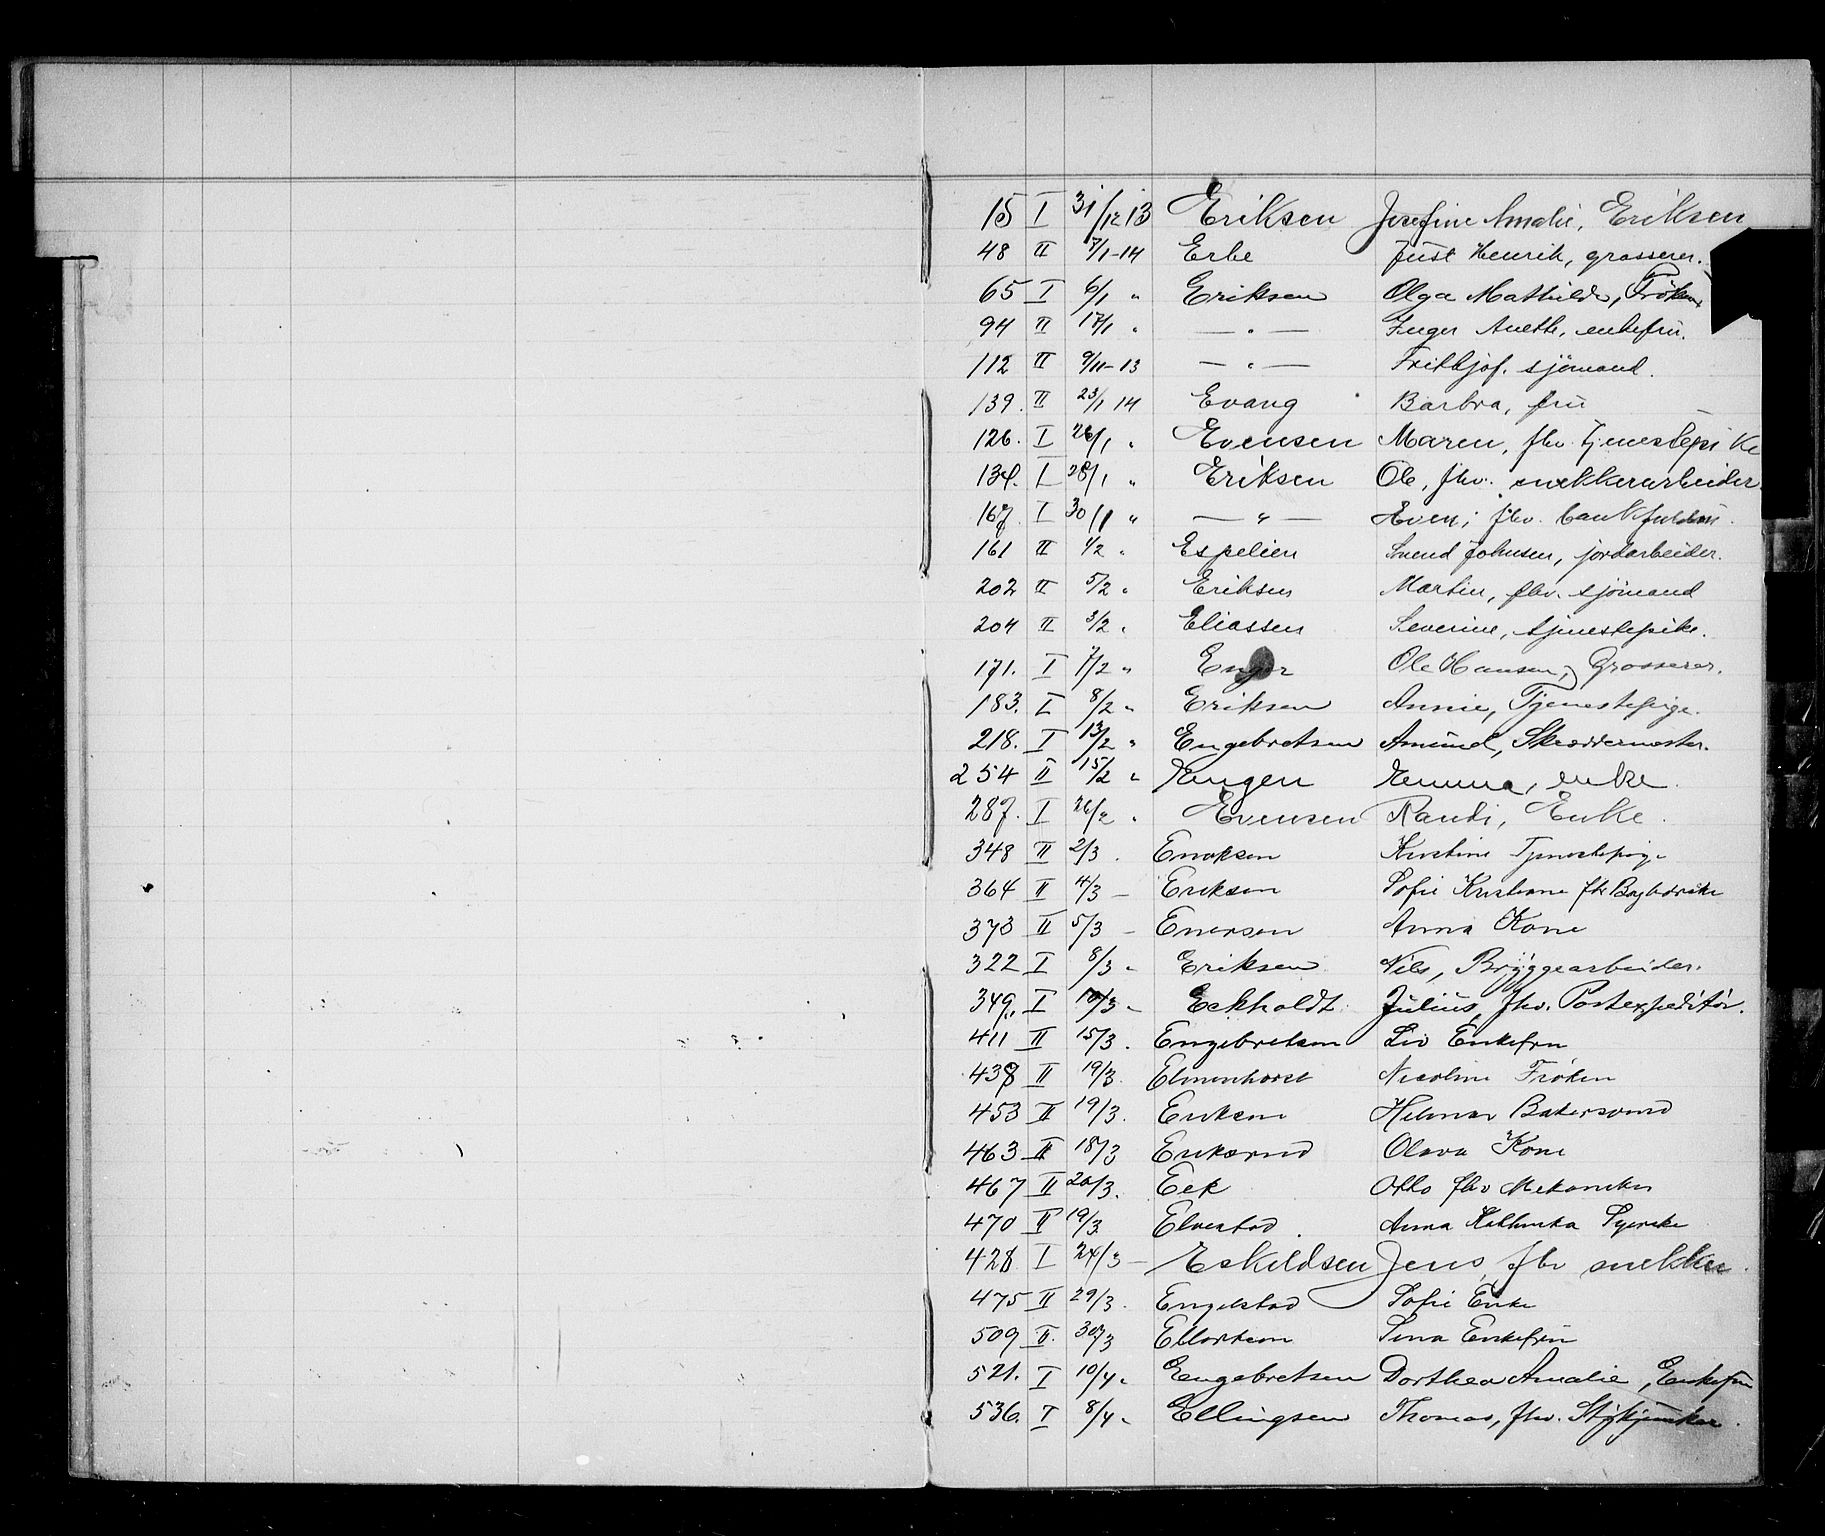 15 I 31/12 13 Eriksen Josefine Amalie, Eriksen
48 II 7/1-14 Erbe Just Henrik, grosserer.
65 I 6/1 " Eriksen Olga Mathilde, Frøken
94 II 17/1 " — " — Inger Anette, enkefru.
112 II 9/11-13 — " — Fritbjof. sjömand.
139. II 23/1 14 Evang Barbra, fru
126. I 26/1 " Evensen Maren, fhv. tjenestepike
134. I 28/1 " Eriksen Ole, fhv. snekkerarbeider.
167. I 30/1 " — " — Even; fhv.
161 II 1/2 " Espelien Svend Johnsen, jordarbeider.
202 II 5/2 " Eriksen Martin, fhv. sjömand
204 II 3/2 " Eliassen Severine, tjenestepike.
171. I 7/2 " Enger Ole Hansen, Grosserer.
183. I 8/2 " Eriksen Annie, Tjenestepige.
218. I 13/2 " Engebretsen Amund, Skreddermester.
254 II 15/2 " Engen Emma, enke.
287. I 26/2 " Evensen Randi, Enke.
348 II 2/3 . Enoksen Kirstine Tjenestepige
364 II 4/3 — Eriksen Sofie Kristiane fhv
373 II 5/3 — Enersen Anna Kone
322 I 8/3 " Eriksen Nils, Bryggearbeider.
349. I 10/3 " Eckholdt Julius, fhv. Postexpeditör.
411 II 15/3 . Engebretsen Liv Enkefru
438 II 19/3. Elmenhorst Nicoline Frøken
453 II 19/3. Eriksen Hilmar Bakersvend
463 II 18/3 Eriksrud Olava Kone
467 II 20/3. Eek Otto fhv Mekaniker
470 II 19/3 Elvestad Anna Kathinka Syerske
428 I 24/3 — Eskildsen Jens, fhv snekker.
475 II 29/3. Engelstad Sofie Enke
509 II. 30/3 Ellertsen Sina Enkefru
521. I 10/4 " Engebretsen Dorthea Amalie, Enkefru
536. I 8/4 " Ellingsen Thomas, fhv. Stykjunker.